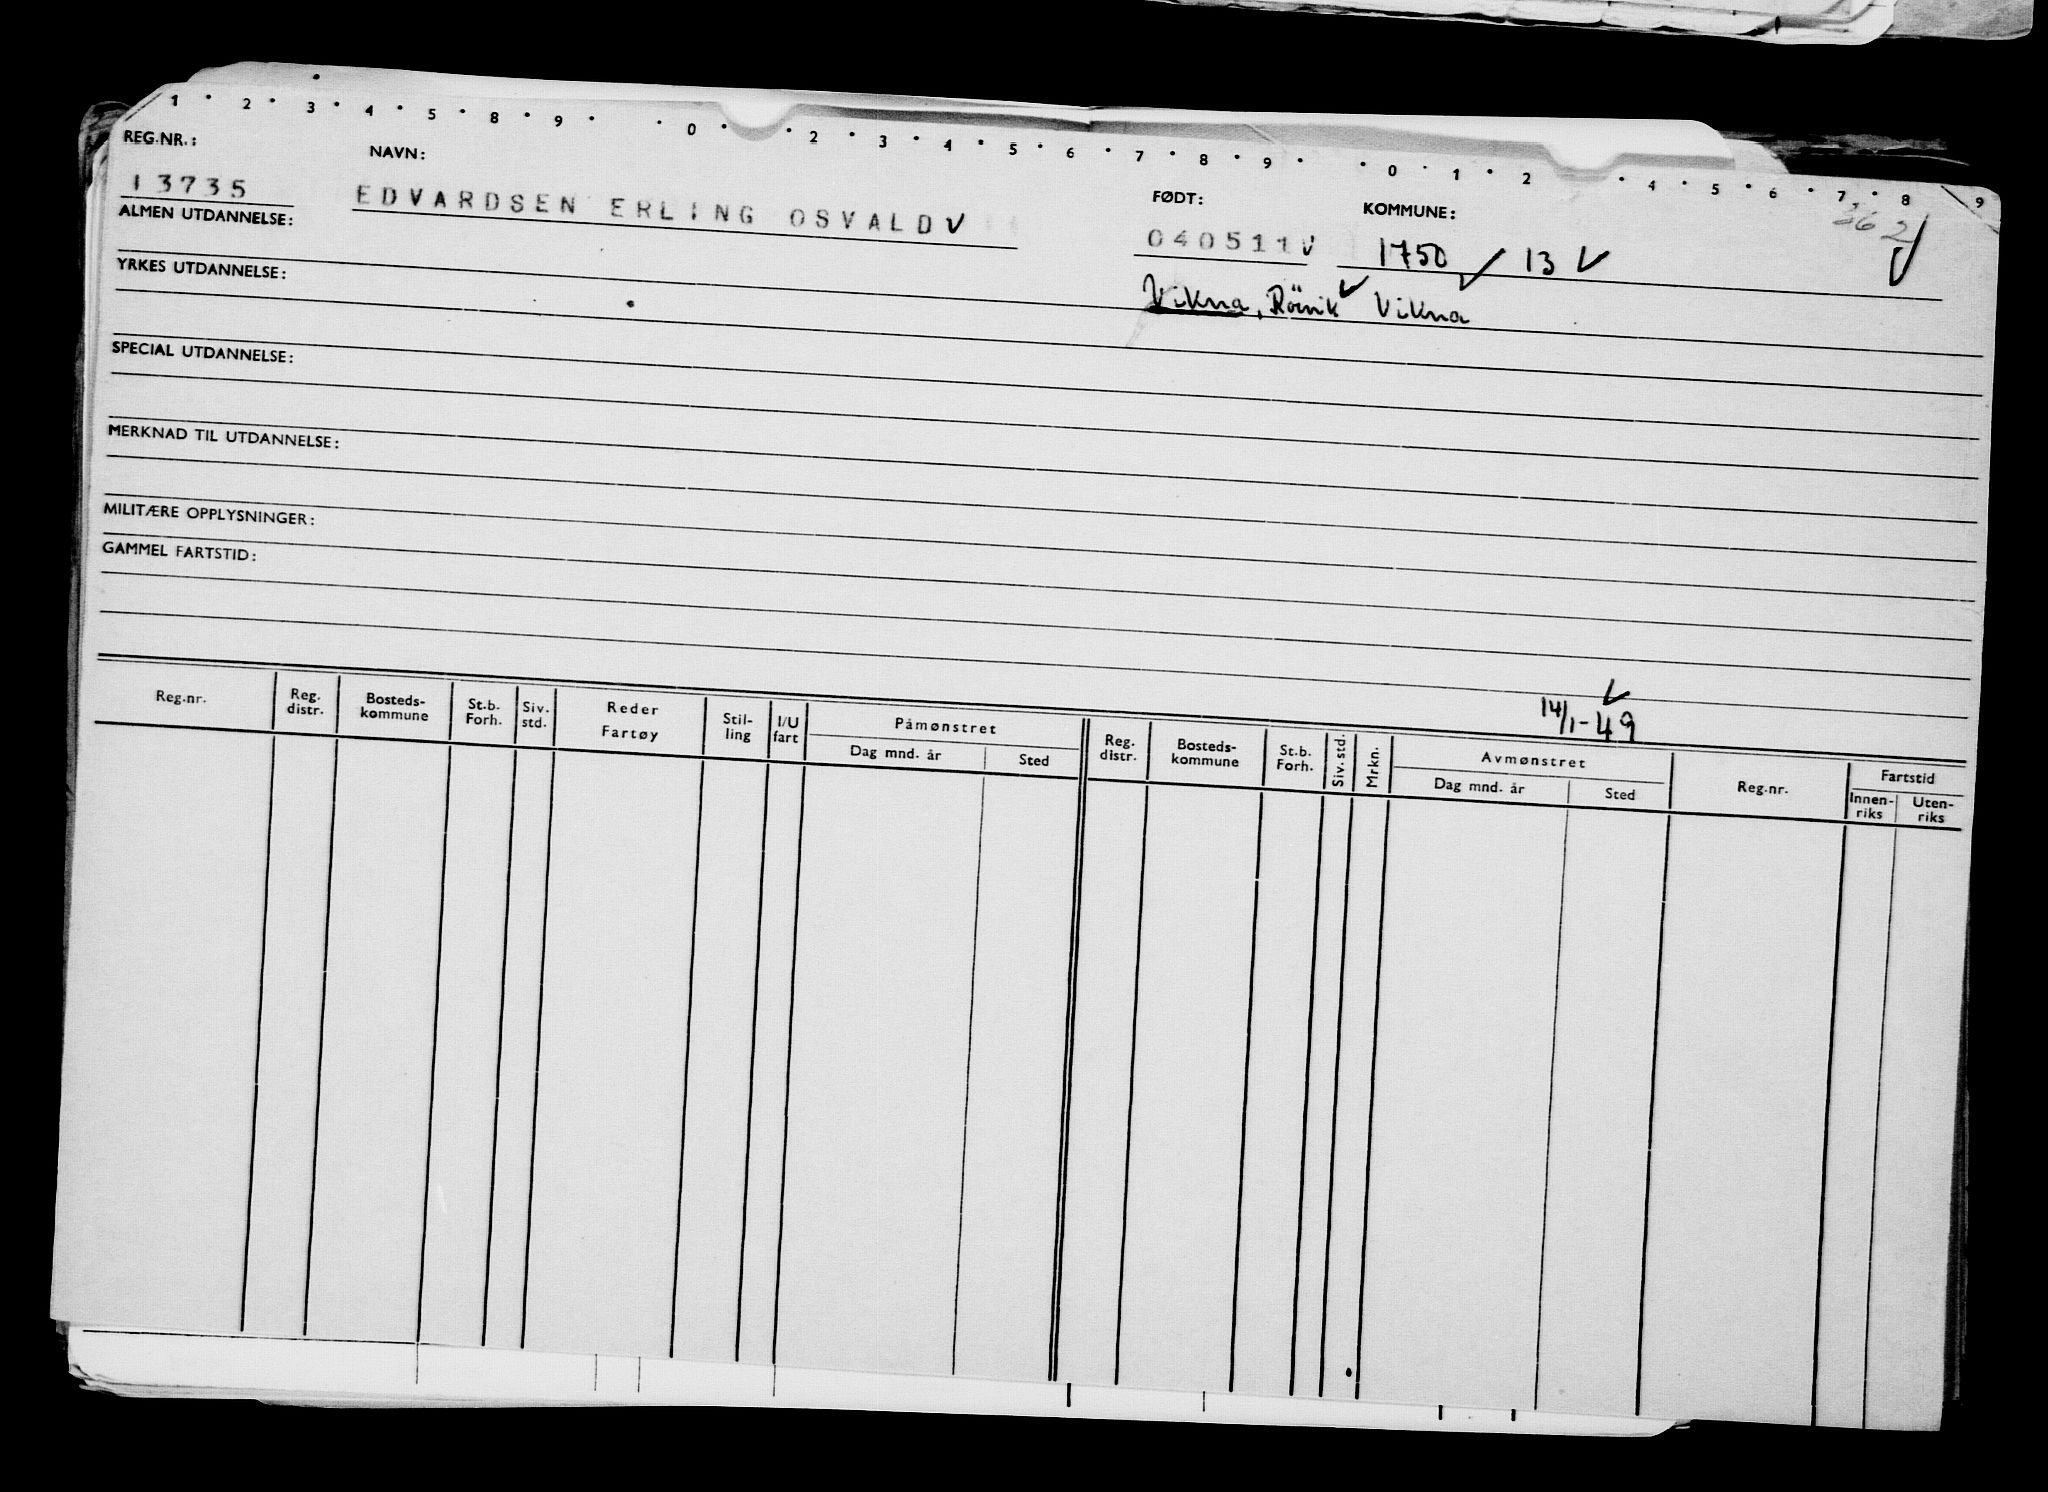 1 2 3 4 5 8 9 0 2 3 4 5 6 7 8 9 0 1 2 4 5 6 7 8 9
REG.NR.: NAVN: FØDT: KOMMUNE:
13735 EDVARDSEN ERLING OSVALD ✓ 040511 ✓ 1750 / 13 ✓
ALMEN UTDANNELSE:
Vikna, Rörvik ✓ Vikna
YRKES UTDANNELSE:
SPECIAL UTDANNELSE:
MERKNAD TIL UTDANNELSE:
MILITÆRE OPPLYSNINGER:
GAMMEL FARTSTID:
14/1-49
Reg.nr. Reg. distr. Bosteds-kommune St.b. Forh. Siv. std. Reder Fartøy Stil-ling I/U fart Påmønstret Dag mnd. år Sted Reg. distr. Bosteds-kommune St.b. Forh. Siv. std. Mrkn. Avmønstret Dag mnd. år Sted Reg.nr. Fartstid Innen-riks Uten-riks